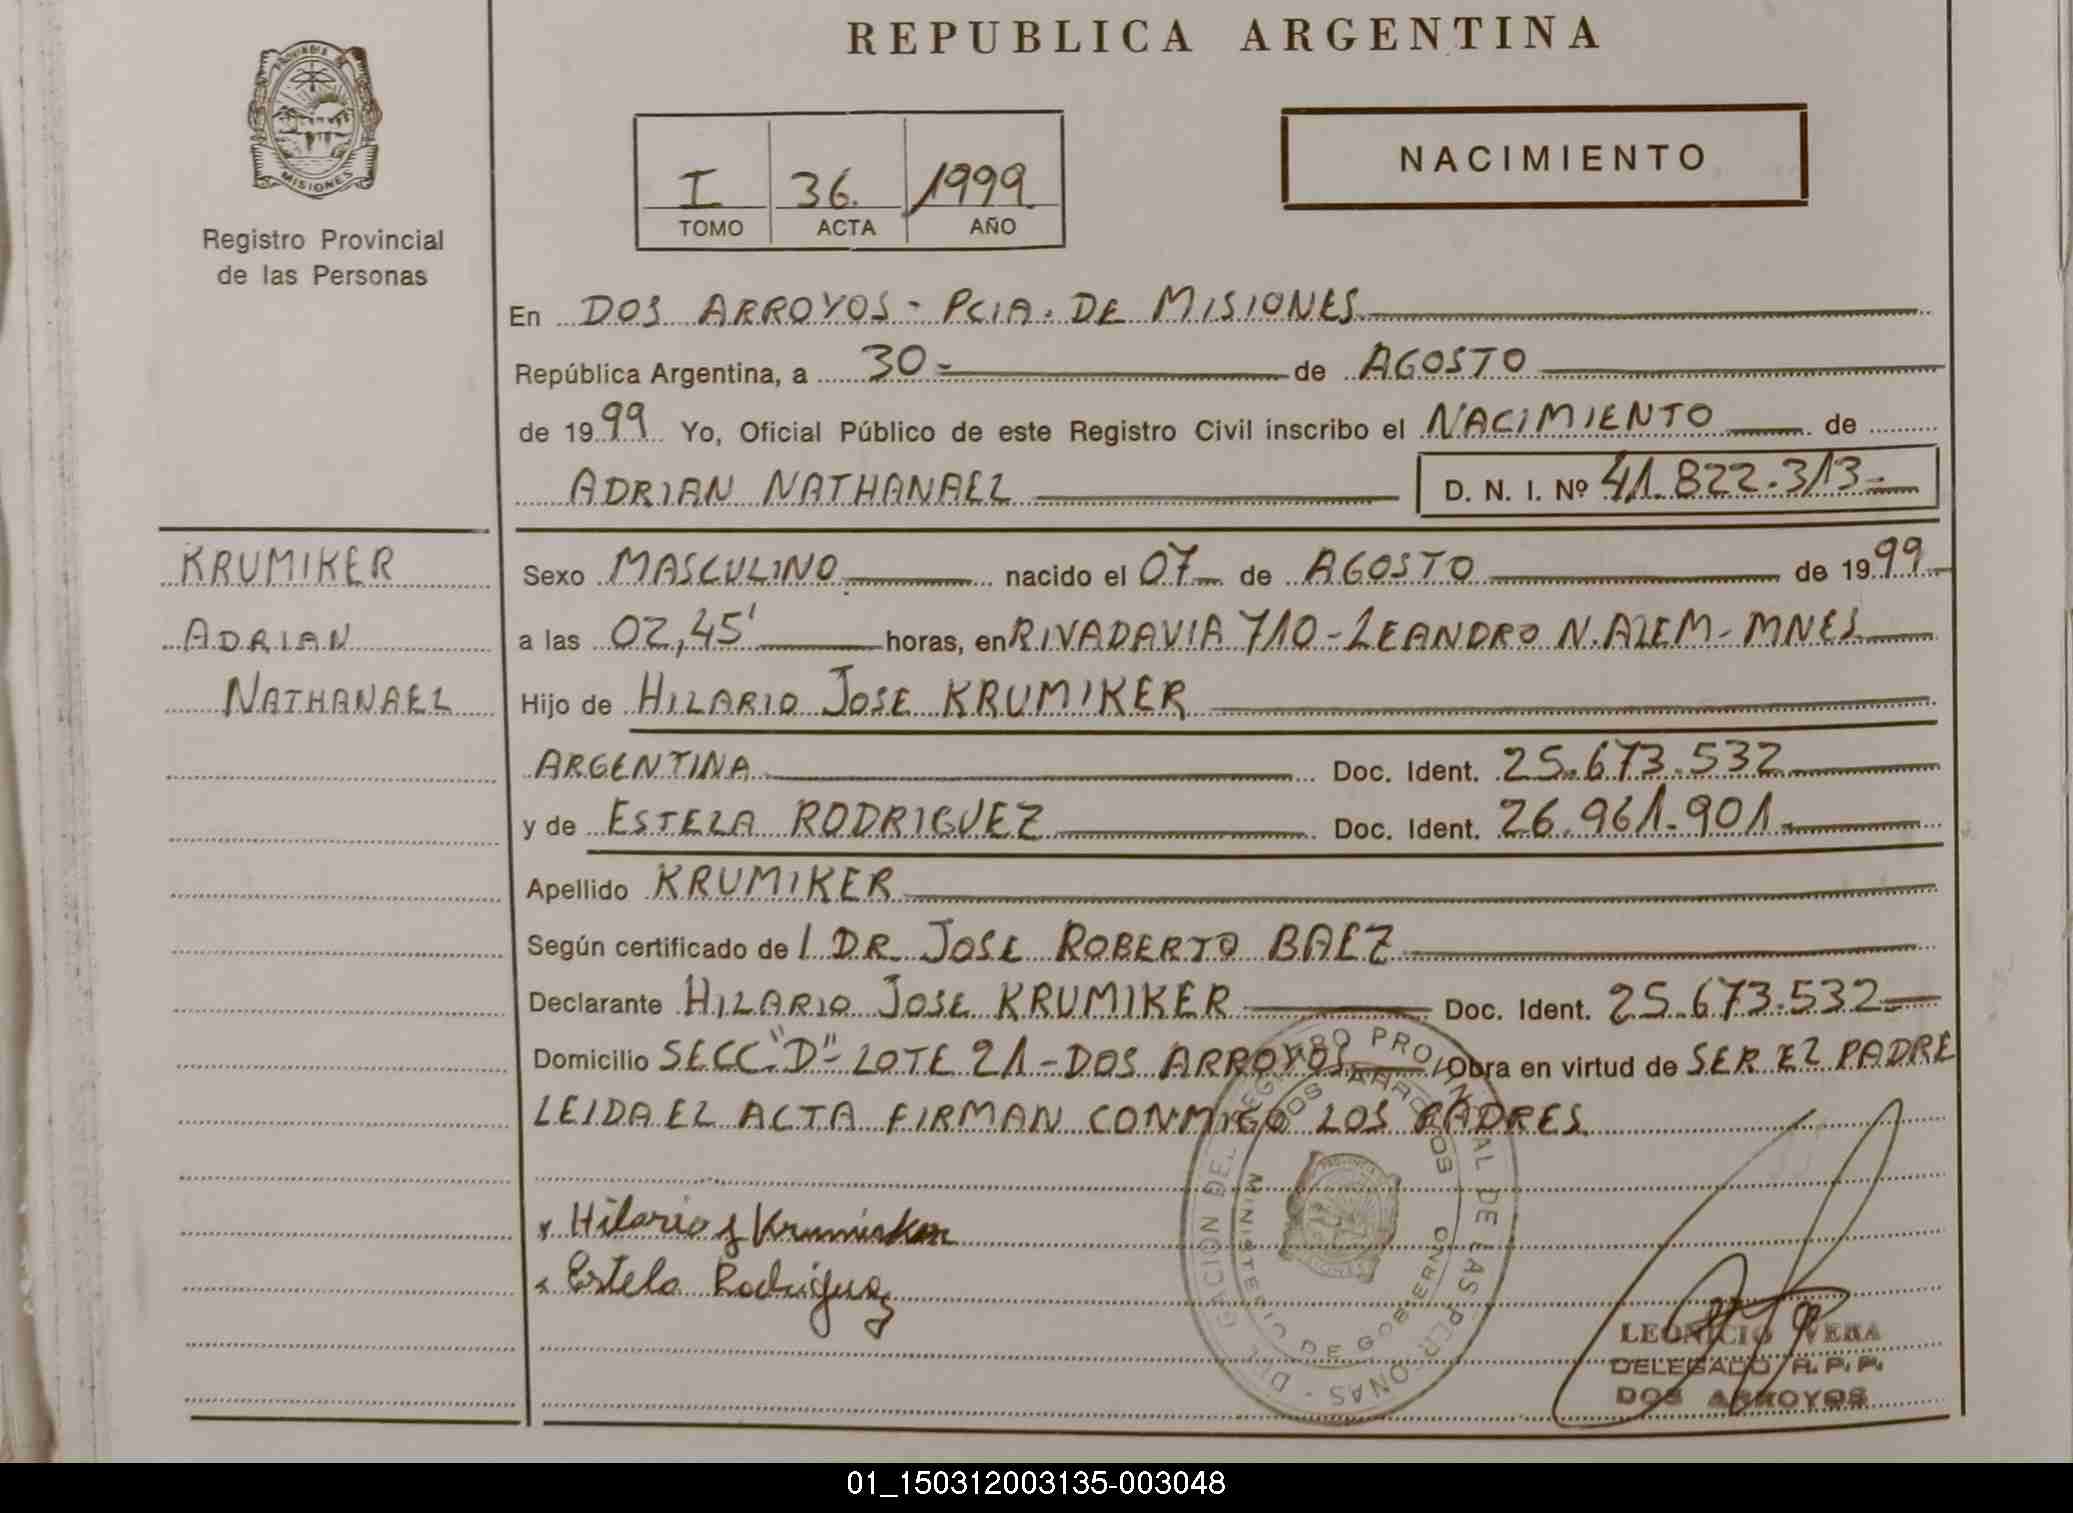 REPUBLICA ARGENTINA
PROVINCIA DE
MISIONES
Registro Provincial
de las Personas
I 36. 1999
TOMO ACTA AÑO
NACIMIENTO
En DOS ARROYOS - PCIA. DE MISIONES
República Argentina, a 30 - de AGOSTO
de 1999 Yo, Oficial Público de este Registro Civil inscribo el NACIMIENTO de
ADRIAN NATHANAEL D. N. I. Nº 41.822.313-
KRUMIKER
ADRIAN
NATHANAEL
Sexo MASCULINO nacido el 07 de AGOSTO de 1999
a las 02,45' horas, en RIVADAVIA 710 - LEANDRO N. ALEM - MNES
Hijo de HILARIO JOSE KRUMIKER
ARGENTINA Doc. Ident. 25.673.532
y de ESTELA RODRIGUEZ Doc. Ident. 26.961.901
Apellido KRUMIKER
Según certificado de l DR. JOSE ROBERTO BAEZ
Declarante HILARIO JOSE KRUMIKER Doc. Ident. 25.673.532
Domicilio SECC. "D" - LOTE 21 - DOS ARROYOS Obra en virtud de SER EL PADRE
LEIDA EL ACTA FIRMAN CONMIGO LOS PADRES
x Hilario J Krumiker
x Estela Rodriguez
DELEGACION DEL REGISTRO PROVINCIAL DE LAS PERSONAS
DOS ARROYOS
MINISTERIO DE GOBIERNO
LEONICIO VERA
DELEGADO R. P. P.
DOS ARROYOS
01_150312003135-003048